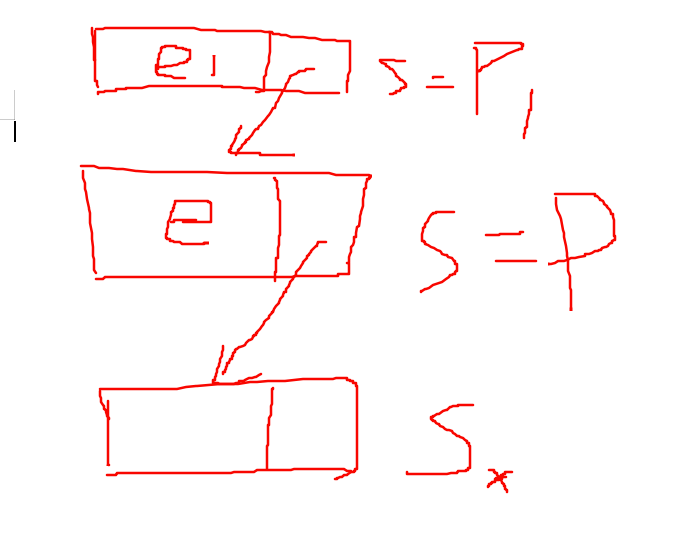 e1 s=P1
e S=P
Sx